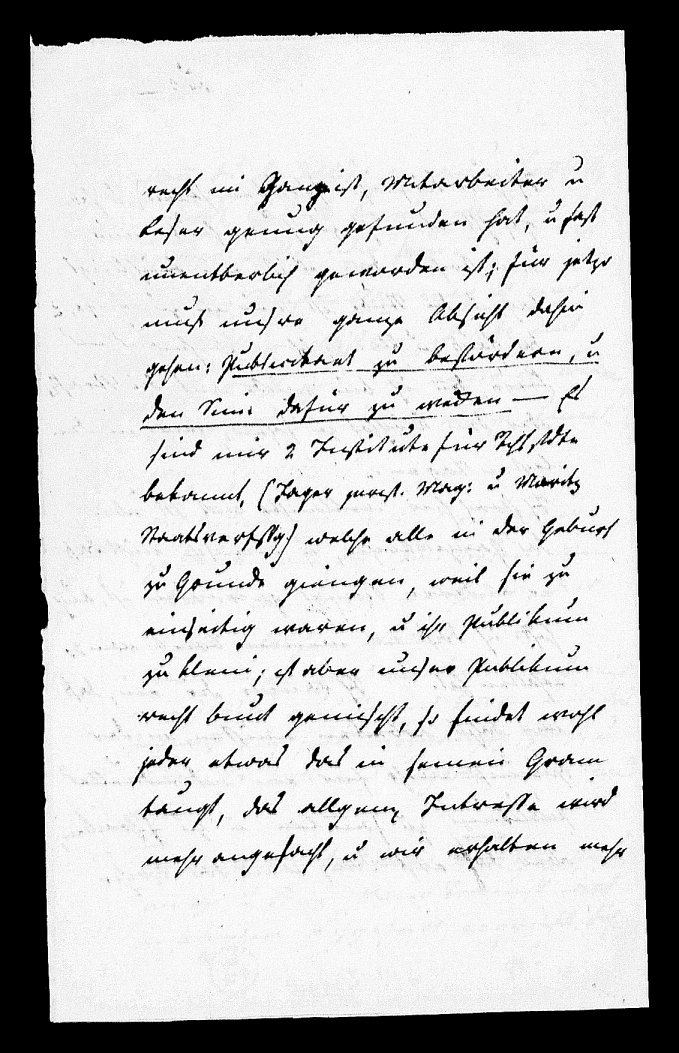 recht im Gang ist, Mitarbeiter u
Leser genung gefunden hat, u fast
unentberlich geworden ist; für jetzo
muß unsre ganze Absicht dahin
gehen: Publicitaet zu befördern, u
den Sinn dafür zu wecken — Es
sind mir 2 Institute für
bekannt, (Jager jurist. Mag: u Moritz
Staatsverfssg) welche alle in der Geburt
zu Grunde giengen, weil sie zu
einseitig waren, u ihr Publikum
zu klein; ist aber unser Publikum
recht bunt gemischt, so findet wohl
jeder etwas das in seinen Gram
taugt, das allgem Intresse wird
mehr angefacht, u wir erhalten mehr